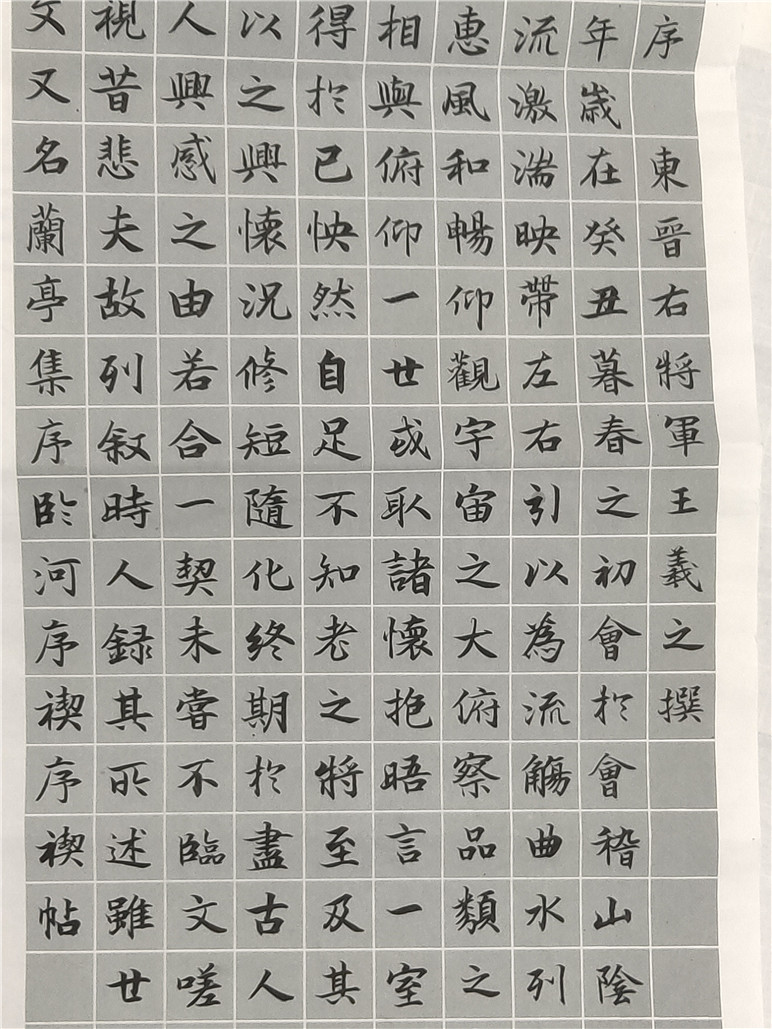 序 東晋右將軍王羲之撰
年歲在癸丑暮春之初會於會稽山陰
流激湍映帶左右引以為流觴曲水列
惠風和暢仰觀宇宙之大俯察品類之
相與俯仰一世或取諸懷抱晤言一室
得於已怏然自足不知老之將至及其
以之興懷況修短隨化終期於盡古人
人興感之由若合一契未嘗不臨文嗟
視昔悲夫故列叙時人録其所述雖世
文又名蘭亭集序臨河序禊序禊帖